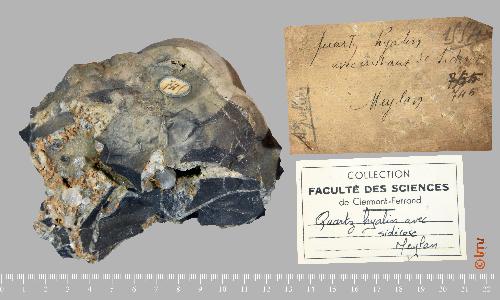 quartz hyalin
avec cristaux de
Meylan
745
COLLECTION
FACULTÉ DES SCIENCES
de Clermont-Ferrand
Quartz hyalin avec
sidérose
Meylan
0 1 2 3 4 5 6 7 8 9 10 11 12 13 14 15 16 17 18 19 20 21 22